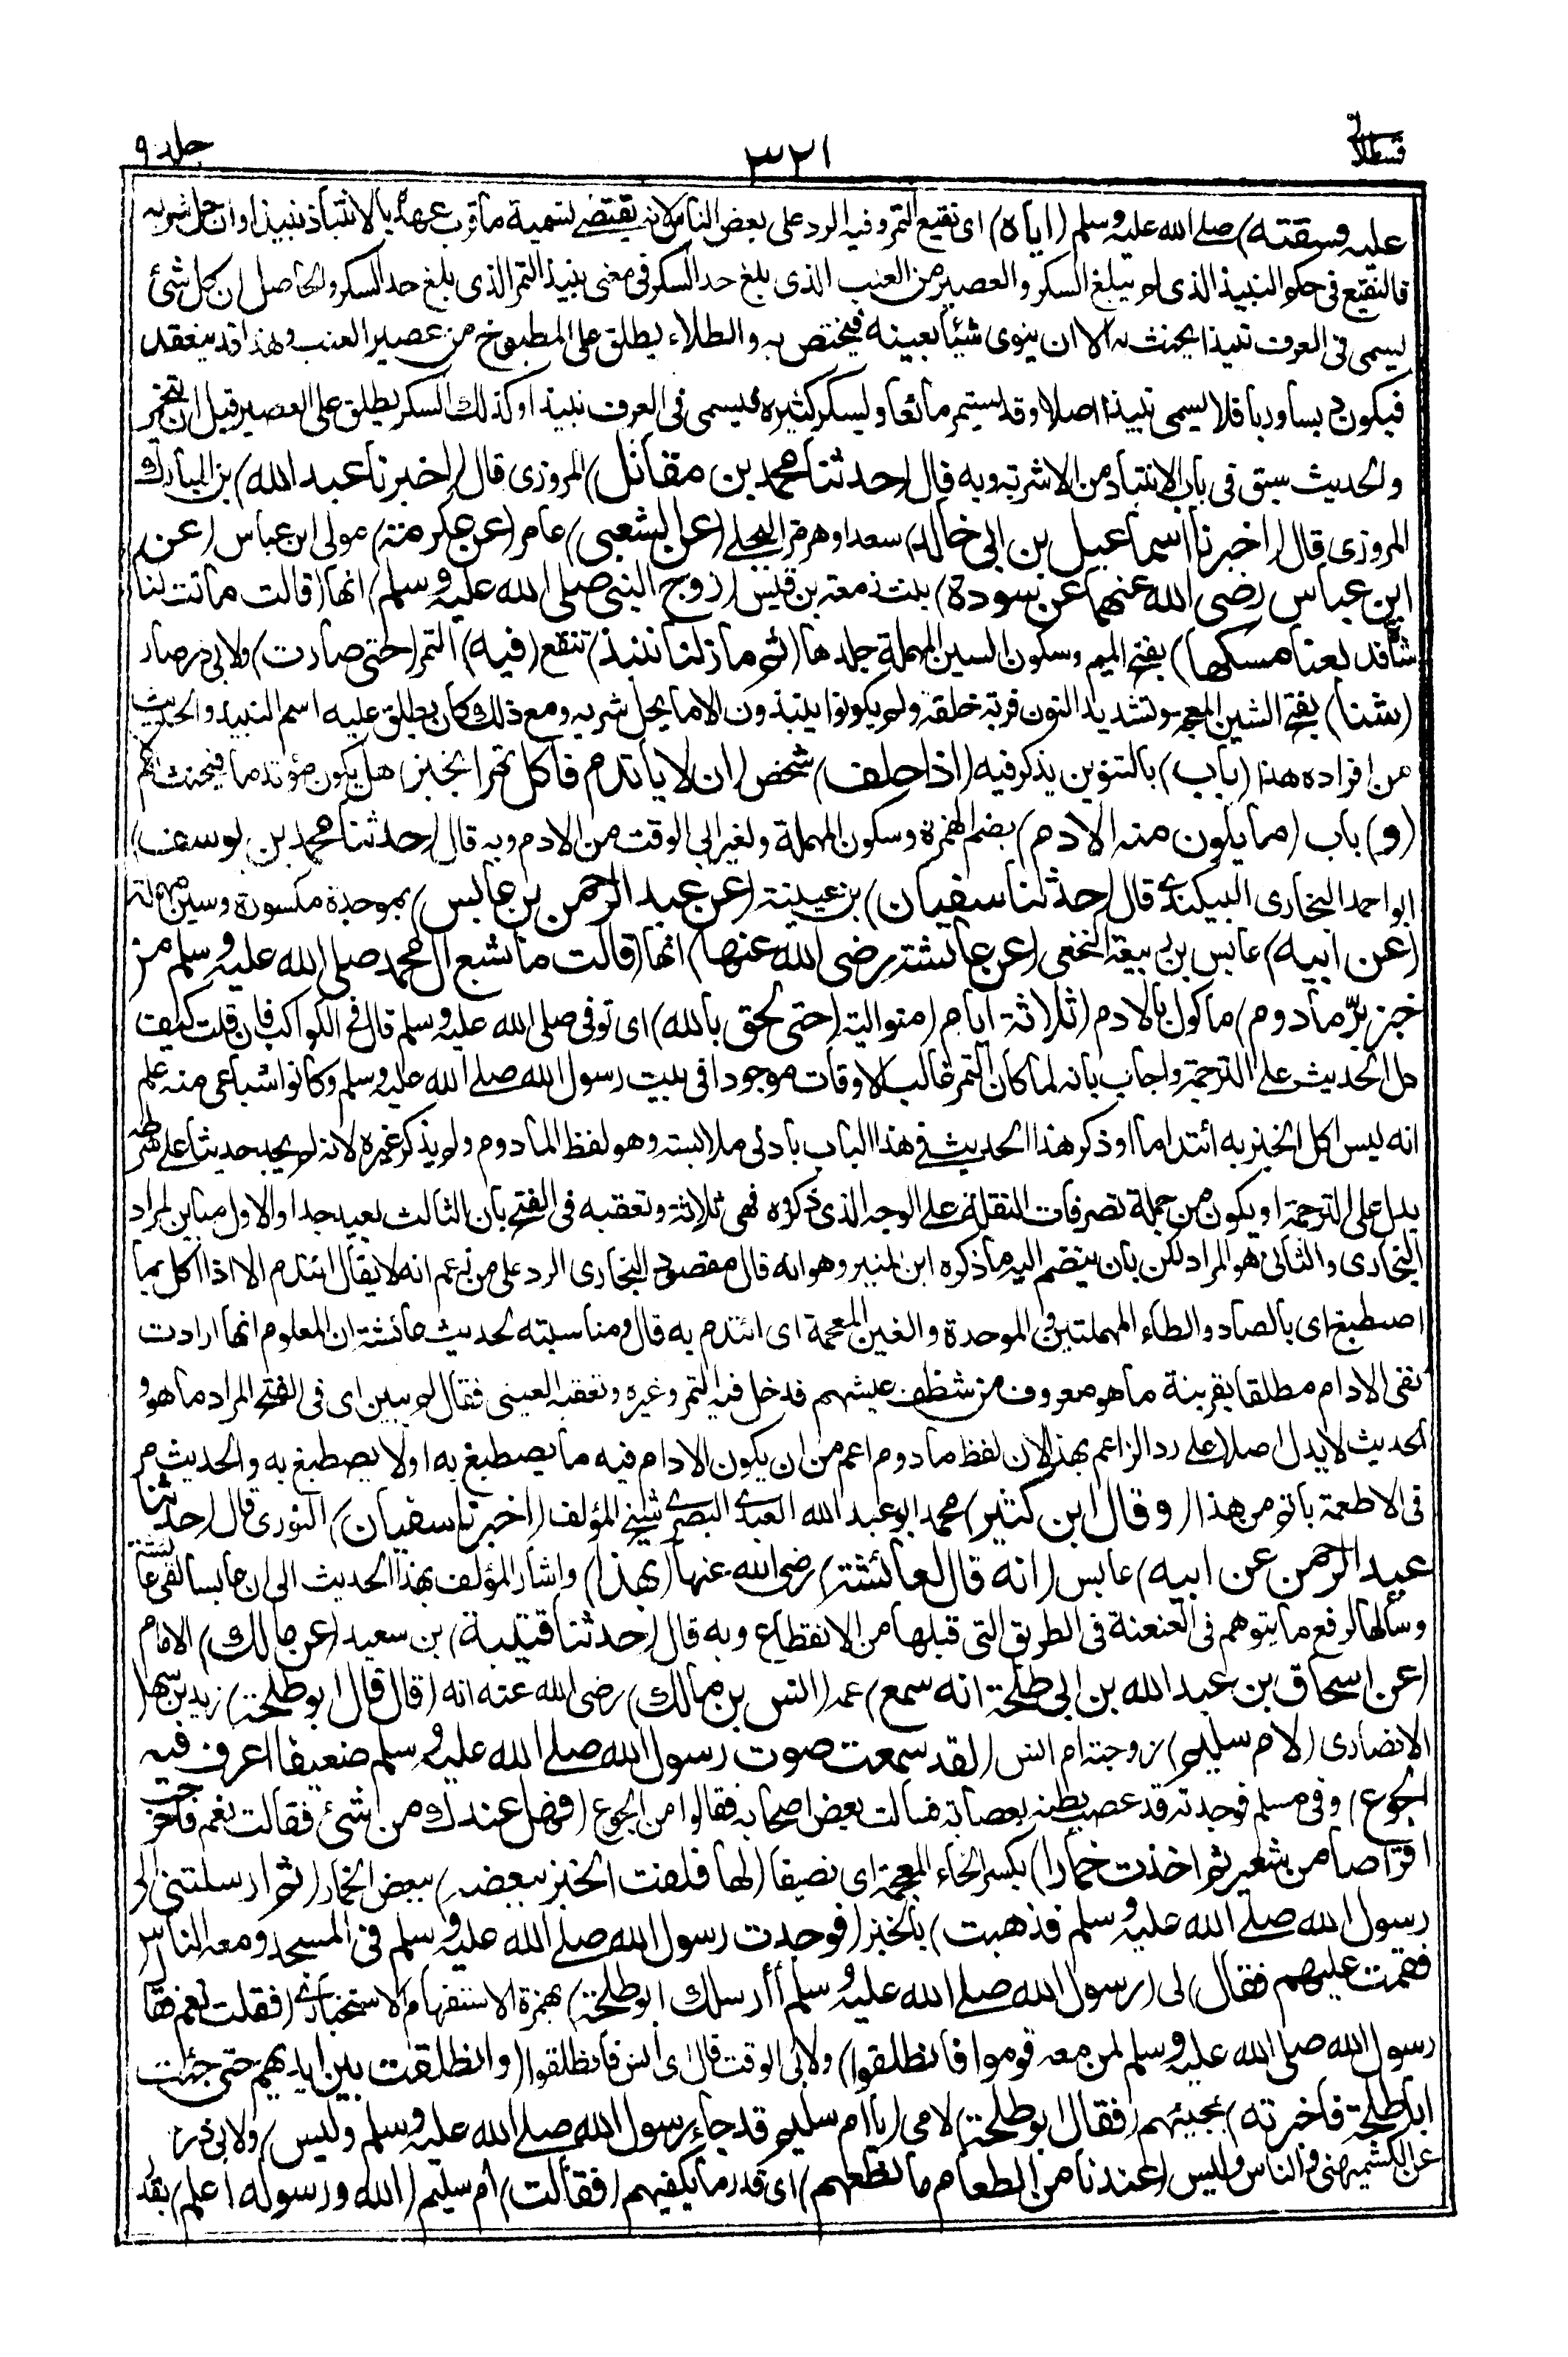 قسطلانی ٣٢١ جلد ٩
عليه وسقته) صلے الله عليه وسلم (اياه) اى نقيع التمر وفيه الرد على بعض الناس لانه يقتضے تسمية ما قرب عهده بالانتباذ نبيذا وان حل شربه
فالنقيع فى حكم النبيذ الذى لم يبلغ السكر والعصير من العنب الذى بلغ حد السكر فى معنى نبيذ التمر الذى بلغ حد السكر والحاصل ان كل شئ
يسمى فى العرف نبيذا يحنث به الا ان ينوى شيئا بعينه فيختص به والطلاء يطلق على المطبوخ من عصير العنب وهذا قد ينعقد
فيكون دبسا وربا فلا يسمى نبيذا اصلا وقد يستمر مائعا ويسكر كثيره فيسمى فى العرف نبيذا وكذلك السكر يطلق على العصير قبل ان يتخمر
والحديث سبق فى باب الانتباذ من الاشربة وبه قال (حدثنا محمد بن مقاتل) المروزى قال (اخبرنا عبد الله) بن المبارك
المروزى قال (اخبرنا اسماعيل بن ابى خالد) سعد او هرمز البجلے (عن الشعبى) عامر (عن عكرمة) مولى ابن عباس (عن
ابن عباس رضى الله عنهما عن سودة) بنت زمعة بن قيس (زوج النبى صلى الله عليه وسلم) انها (قالت ماتت لنا
شاة فدبغنا مسكها) بفتح الميم وسكون السين المهملة جلدها (ثم ما زلنا ننبذ) ننقع (فيه) التمر (حتى صارت) ولابى ذر صار
(شنا) بفتح الشين المعجمة وتشديد النون قربة خلقة ولم يكونوا ينبذون الا ما يحل شربه ومع ذلك كان يطلق عليه اسم النبيذ والحديث
من افراده هذا (باب) بالتنوين يذكر فيه (اذا حلف) شخص (ان لا يأتدم فأكل تمرا بخبز) هل يكون مؤتدما فيحنث ام لا
(و) باب (ما يكون منه الادم) بضم الهمزة وسكون المهملة ولغير ابى الوقت من الادم وبه قال (حدثنا محمد بن يوسف)
ابو احمد البخارى البيكندى قال (حدثنا سفيان) بن عيينة (عن عبد الرحمن بن عابس) بموحدة مكسورة وسين مهملة
(عن ابيه) عابس بن ربيعة النخعى (عن عائشة رضى الله عنها) انها (قالت ما شبع آل محمد صلى الله عليه وسلم من
خبز برّ مأدوم) مأكول بالادم (ثلاثة ايام) متوالية (حتى لحق بالله) اى توفى صلى الله عليه وسلم قال فى الكواكب فان قلت كيف
دل الحديث على الترجمة واجاب بانه لما كان التمر غالب الاوقات موجودا فى بيت رسول الله صلے الله عليه وسلم وكانوا شباعى منه علم
انه ليس اكل الخبز به ائتداما او ذكر هذا الحديث فى هذا الباب بادنى ملابسة وهو لفظ المأدوم ولم يذكر غيره لانه لم يجد حديثا على شرطه
يدل على الترجمة او يكون من جملة تصرفات النقلة على الوجه الذى ذكروه فهى ثلاثة وتعقبه فى الفتح بان الثالث بعيد جدا والاول مباين لمراد
البخارى والثانى هو المراد لكن بان ينضم اليه ما ذكره ابن المنير وهو انه قال مقصود البخارى الرد على من زعم انه لا يقال ائتدم الا اذا اكل بما
اصطبغ اى بالصاد والطاء المهملتين والموحدة والغين المعجمة اى ائتدم به قال ومناسبته لحديث عائشة ان المعلوم انها ارادت
نفى الادام مطلقا بقرينة ما هو معروف من شظف عيشهم فدخل فيه التمر وغيره وتعقبه العينى فقال لم يبين اى فى الفتح المراد ما هو و
الحديث لا يدل اصلا على رد الزاعم بهذا لان لفظ مأدوم اعم من ان يكون الادام فيه ما يصطبغ به او لا يصطبغ به والحديث مر
فى الاطعمة باتم من هذا (وقال ابن كثير) محمد ابو عبد الله العبدى البصرى شيخ المؤلف (اخبرنا سفيان) الثورى قال (حدثنا
عبد الرحمن عن ابيه) عابس (انه قال لعائشة) رضى الله عنها (بهذا) واشار المؤلف بهذا الحديث الى ان عابسا لقى عائشة
وسألها لرفع ما يتوهم فى العنعنة فى الطريق التى قبلها من الانقطاع وبه قال (حدثنا قتيبة) بن سعيد (عن مالك) الامام
(عن اسحاق بن عبد الله بن ابى طلحة انه سمع) عمه (انس بن مالك) رضى الله عنه انه (قال قال ابو طلحة) زيد بن سهل
الانصارى (لام سليم) زوجته ام انس (لقد سمعت صوت رسول الله صلے الله عليه وسلم ضعيفا اعرف فيه
الجوع) وفى مسلم فوجدته قد عصب بطنه بعصابة فسألت بعض اصحابه فقالوا من الجوع (فهل عندك من شئ فقالت نعم فاخرجت
اقراصا من شعير ثم اخذت خمارا) بكسر الخاء المعجمة اى نصيفا (لها فلفت الخبز ببعضه) ببعض الخمار (ثم ارسلتنى الى
رسول الله صلے الله عليه وسلم فذهبت) بالخبز (فوجدت رسول الله صلے الله عليه وسلم فى المسجد ومعه الناس
فقمت عليهم فقال) لى (رسول الله صلے الله عليه وسلم أأرسلك ابو طلحة) بهمزة الاستفهام الاستخبارى (فقلت نعم فقال
رسول الله صلى الله عليه وسلم لمن معه قوموا فانطلقوا) ولابى الوقت قال اى انس فانطلقوا (وانطلقت بين ايديهم حتى جئت
ابا طلحة فاخبرته) بمجيئهم (فقال ابو طلحة) لامى (يا ام سليم قد جاء رسول الله صلے الله عليه وسلم وليس) ولابى ذر
عن الكشميهنى والناس وليس (عندنا من الطعام ما نطعمهم) اى قدر ما يكفيهم (فقالت) ام سليم (الله ورسوله اعلم) بقد